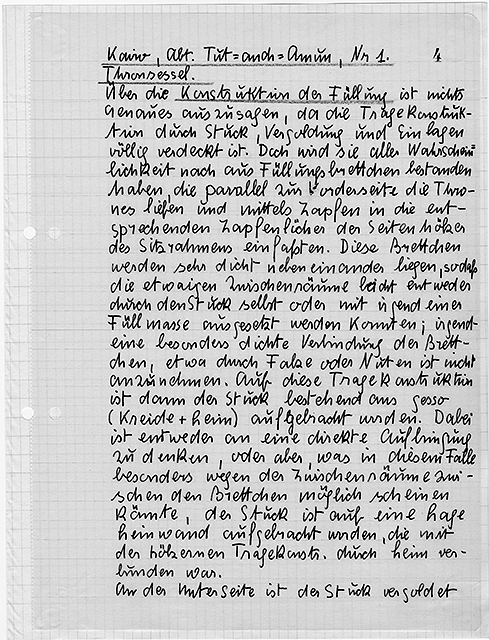 Kairo, Abt. Tut=anch=Amun, Nr 1. 4
Thronsessel.
Über die Konstruktion der Füllung ist nichts
Genaues auszusagen, da die Tragekonstruk-
tion durch Stuck, Vergoldung und Einlagen
völlig verdeckt ist. Doch wird sie aller Wahrschein-
lichkeit nach aus Füllungsbrettchen bestanden
haben, die parallel zur Vorderseite die Thro-
nes liefen und mittels Zapfen in die ent-
sprechenden Zapfenlöcher der Seitenhölzer
des Sitzrahmens einfaßten. Diese Brettchen
werden sehr dicht nebeneinander liegen, sodaß
die etwaigen Zwischenräume leicht entweder
durch den Stuck selbst oder mit irgend einer
Füllmasse ausgesetzt werden konnten; irgend-
eine besonders dichte Verbindung der Brett-
chen, etwa durch Falze oder Nuten ist nicht
anzunehmen. Auf diese Tragekonstruktion
ist dann der Stuck bestehend aus gesso
(Kreide + Leim) aufgebracht worden. Dabei
ist entweder an eine direkte Aufbringung
zu denken, oder aber, was in diesem Falle
besonders wegen der Zwischenräume zwi-
schen den Brettchen möglich scheinen
könnte, der Stuck ist auf eine Lage
Leinwand aufgebracht worden, die mit
der hölzernen Tragekonstr. durch Leim ver-
bunden war.
An der Unterseite ist der Stuck vergoldet